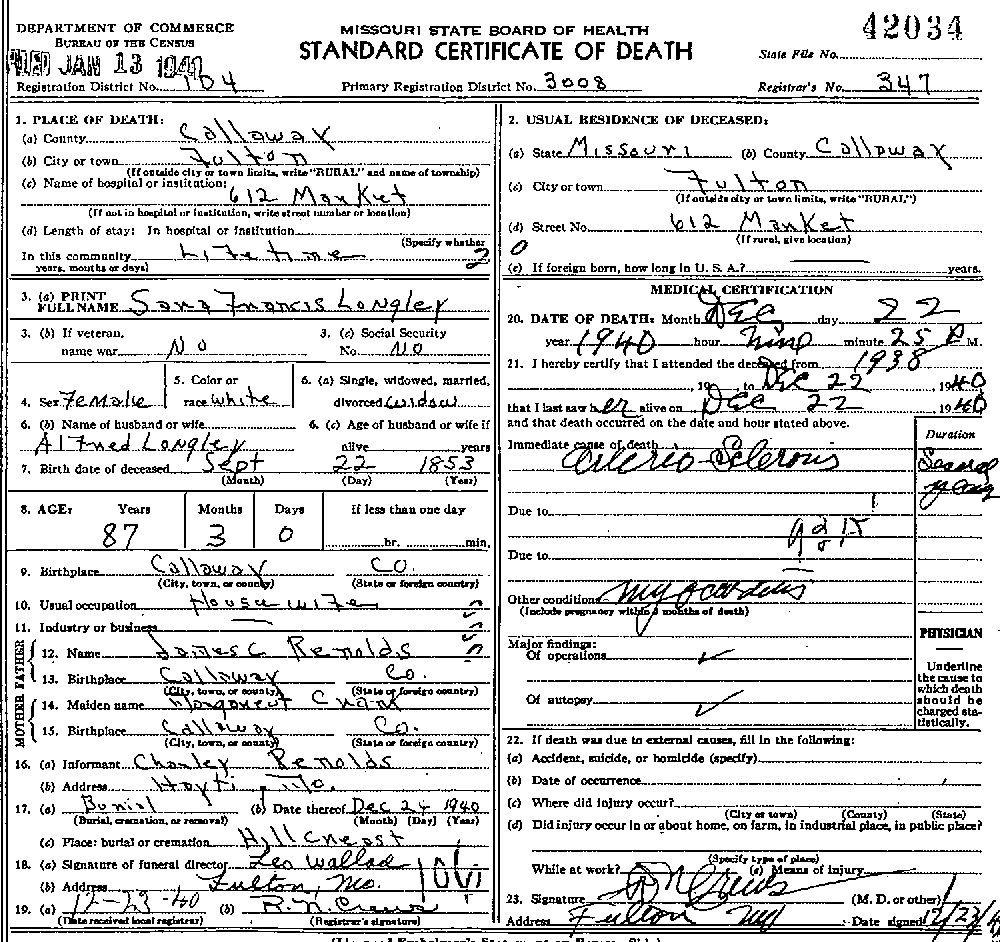 DEPARTMENT OF COMMERCE
BUREAU OF THE CENSUS
JAN 13 1941
Registration District No. 104
MISSOURI STATE BOARD OF HEALTH
STANDARD CERTIFICATE OF DEATH
Primary Registration District No. 3008
42034
State File No.
Registrar's No. 347
1. PLACE OF DEATH:
(a) County Callaway
(b) City or town Fulton
(If outside city or town limits, write "RURAL" and name of township)
(c) Name of hospital or institution:
612 Market
(If not in hospital or institution, write street number or location)
(d) Length of stay: In hospital or institution
(Specify whether
In this community Lifetime 2
years, months or days)
3. (a) PRINT FULL NAME Sara Francis Longley
3. (b) If veteran, name war No
3. (c) Social Security No. No
4. Sex Female
5. Color or race White
6. (a) Single, widowed, married, divorced widow
6. (b) Name of husband or wife
Alfred Longley
6. (c) Age of husband or wife if alive years
7. Birth date of deceased Sept 22 1853
(Month) (Day) (Year)
8. AGE: Years Months Days If less than one day
87 3 0 hr. min.
9. Birthplace Callaway Co.
(City, town, or county) (State or foreign country)
10. Usual occupation House wife
11. Industry or business
FATHER
12. Name James C Renolds
13. Birthplace Callaway Co.
(City, town, or county) (State or foreign country)
MOTHER
14. Maiden name Margaret
15. Birthplace Callaway Co.
(City, town, or county) (State or foreign country)
16. (a) Informant Charley Renolds
(b) Address Hayti, Mo.
17. (a) Burial (b) Date thereof Dec 24 1940
(Burial, cremation, or removal) (Month) (Day) (Year)
(c) Place: burial or cremation Hillcrest
18. (a) Signature of funeral director Leo
(b) Address Fulton, Mo.
19. (a) 12-23-40 (b) R. N. Crews
(Date received local registrar) (Registrar's signature)
2. USUAL RESIDENCE OF DECEASED:
(a) State Missouri (b) County Callaway
(c) City or town Fulton
(If outside city or town limits, write "RURAL")
(d) Street No. 612 Market
(If rural, give location)
0
(e) If foreign born, how long in U. S. A.? years.
MEDICAL CERTIFICATION
20. DATE OF DEATH: Month Dec day 22
year 1940 hour nine minute 25 P M.
21. I hereby certify that I attended the deceased from 1938
, 19 , to Dec 22 , 1940
that I last saw her alive on Dec 22 1940
and that death occurred on the date and hour stated above.
Duration
Immediate cause of death
Arterio-Sclerosis
Several years
Due to
Due to
Other conditions Myocarditis
(Include pregnancy within 3 months of death)
Major findings:
Of operations
Of autopsy
PHYSICIAN
Underline the cause to which death should be charged statistically.
22. If death was due to external causes, fill in the following:
(a) Accident, suicide, or homicide (specify)
(b) Date of occurrence
(c) Where did injury occur?
(City or town) (County) (State)
(d) Did injury occur in or about home, on farm, in industrial place, in public place?
(Specify type of place)
While at work? (e) Means of injury
23. Signature RN Crews (M. D. or other)
Address Fulton Mo Date signed 12/23/4